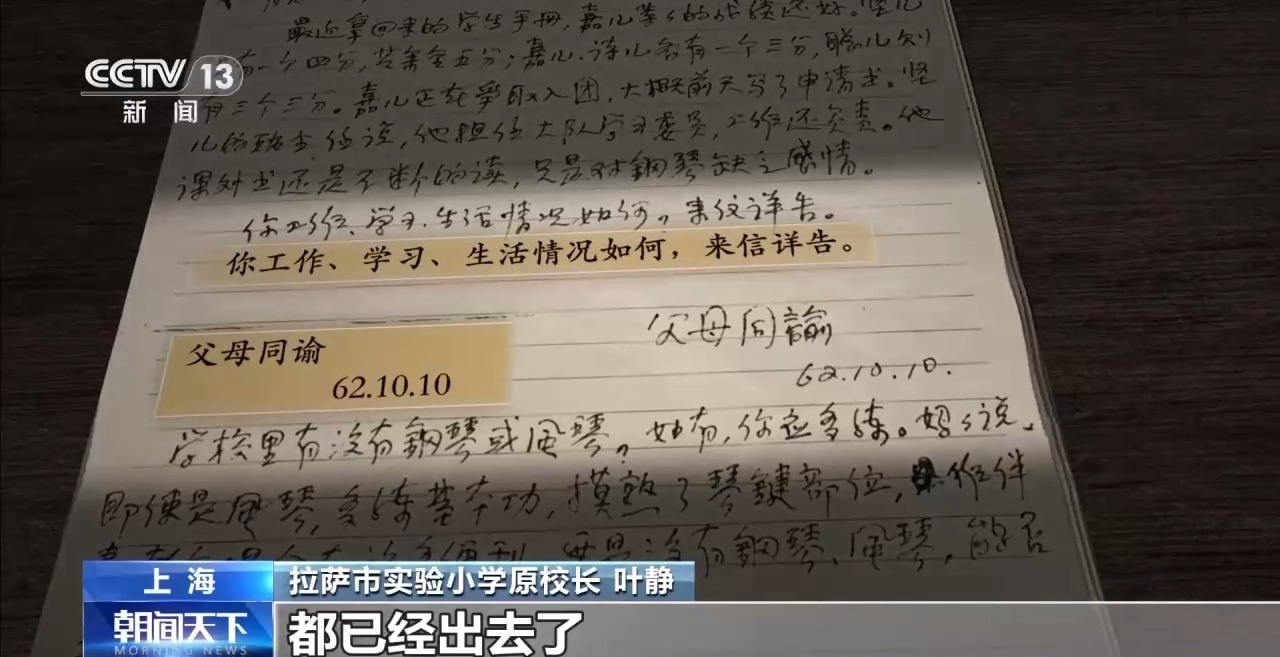 最近拿回来的学生手册，嘉儿等的成绩还好。坚儿
有一个四分，其余全五分；嘉儿、诗儿各有一个三分，聪儿则
有三个三分。嘉儿正在争取入团，大概前天写了申请书。坚
儿的班主任说，他担任大队学习委员，工作还负责。他
课外书还是不断的读，只是对鋼琴缺乏感情。
你工作、学习、生活情况如何，来信详告。
你工作、学习、生活情况如何，来信详告。
父母同諭
62.10.10.
父母同谕
62.10.10
学校里有没有鋼琴或風琴，如有，你应多练。妈々说，
即使是風琴，多练基本功，摸熟了琴鍵部位，作伴
没有鋼琴、風琴，能否
CCTV 13
新闻
上海
拉萨市实验小学原校长 叶静
朝闻天下
MORNING NEWS
都已经出去了